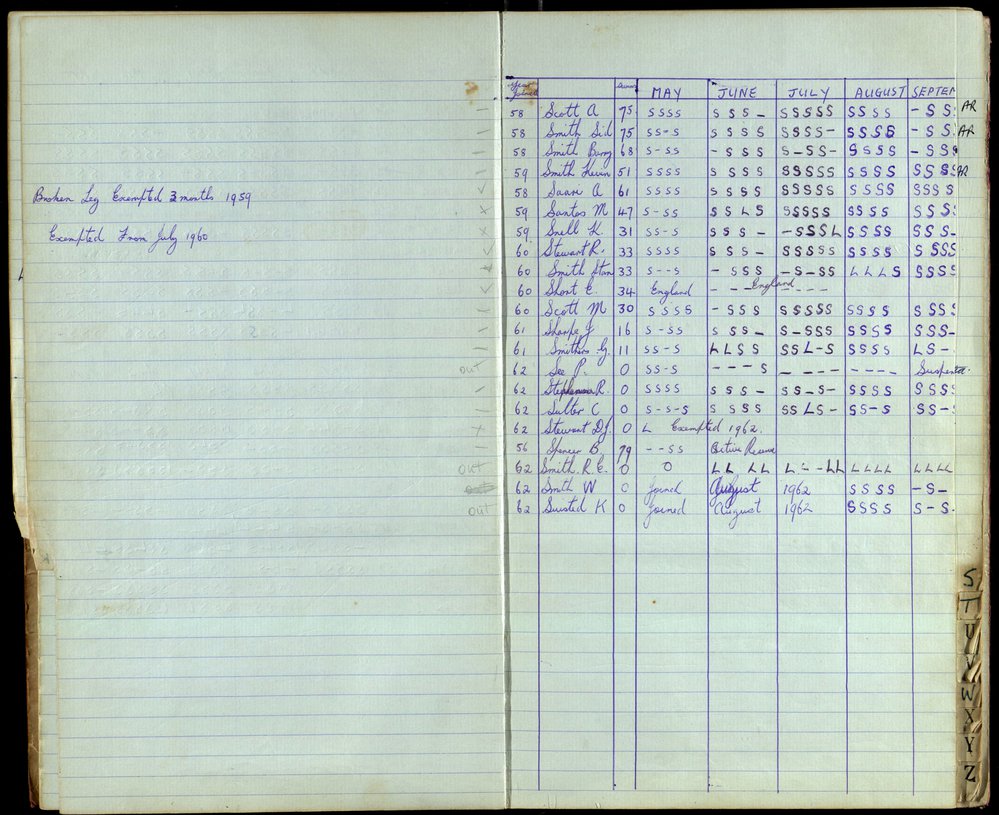 Broken Leg Exempted 3 months 1959
Exempted From July 1960
out
out
out
Year Joined MAY JUNE JULY AUGUST SEPTEM
58 Scott A 75 SSSS SSS- SSSSS SSSS -SS AR
58 Smith Sid 75 SS-S SSSS SSSS- SSSS -SS AR
58 Smith Barry 68 S-SS -SSS S-SS- SSSS -SSS
59 Smith Kevin 51 SSSS SSSS SSSSS SSSS SSSS AR
58 A 61 SSSS SSSS SSSSS SSSS SSSS
59 Santos M 47 S-SS SSLS SSSSS SSSS SSS
59 Snell K 31 SS-S SSS- -SSSL SSSS SSS-
60 Stewart R. 33 SSSS SSS- SSSSS SSSS SSSS
60 Smith Stan 33 S--S -SSS -S-SS LLLS SSSS
60 Short E. 34 England - - - England - - -
60 Scott M 30 SSSS -SSS SSSSS SSSS SSSS
61 Sharpe J 16 S-SS SSS- S-SSS SSSS SSS-
61 Smithers G. 11 SS-S LLSS SSL-S SSSS LS--
62 See P. 0 SS-S ---S - ---- ---- Suspended.
62 Stephenson R. 0 SSSS SSS- SS-S- SSSS SSSS
62 Sulter C 0 S-S-S SSSS SSLS- SS-S SS-S
62 Stewart D.J. 0 L Exempted 1962.
56 Spencer B. 79 --SS Active Reserve
62 Smith. R.E. 0 0 LLLL L--LL LLLL LLLL
62 Smith W 0 Joined August 1962 SSSS -S-
62 K 0 Joined August 1962 SSSS S-S-
S
T
U
V
W
X
Y
Z